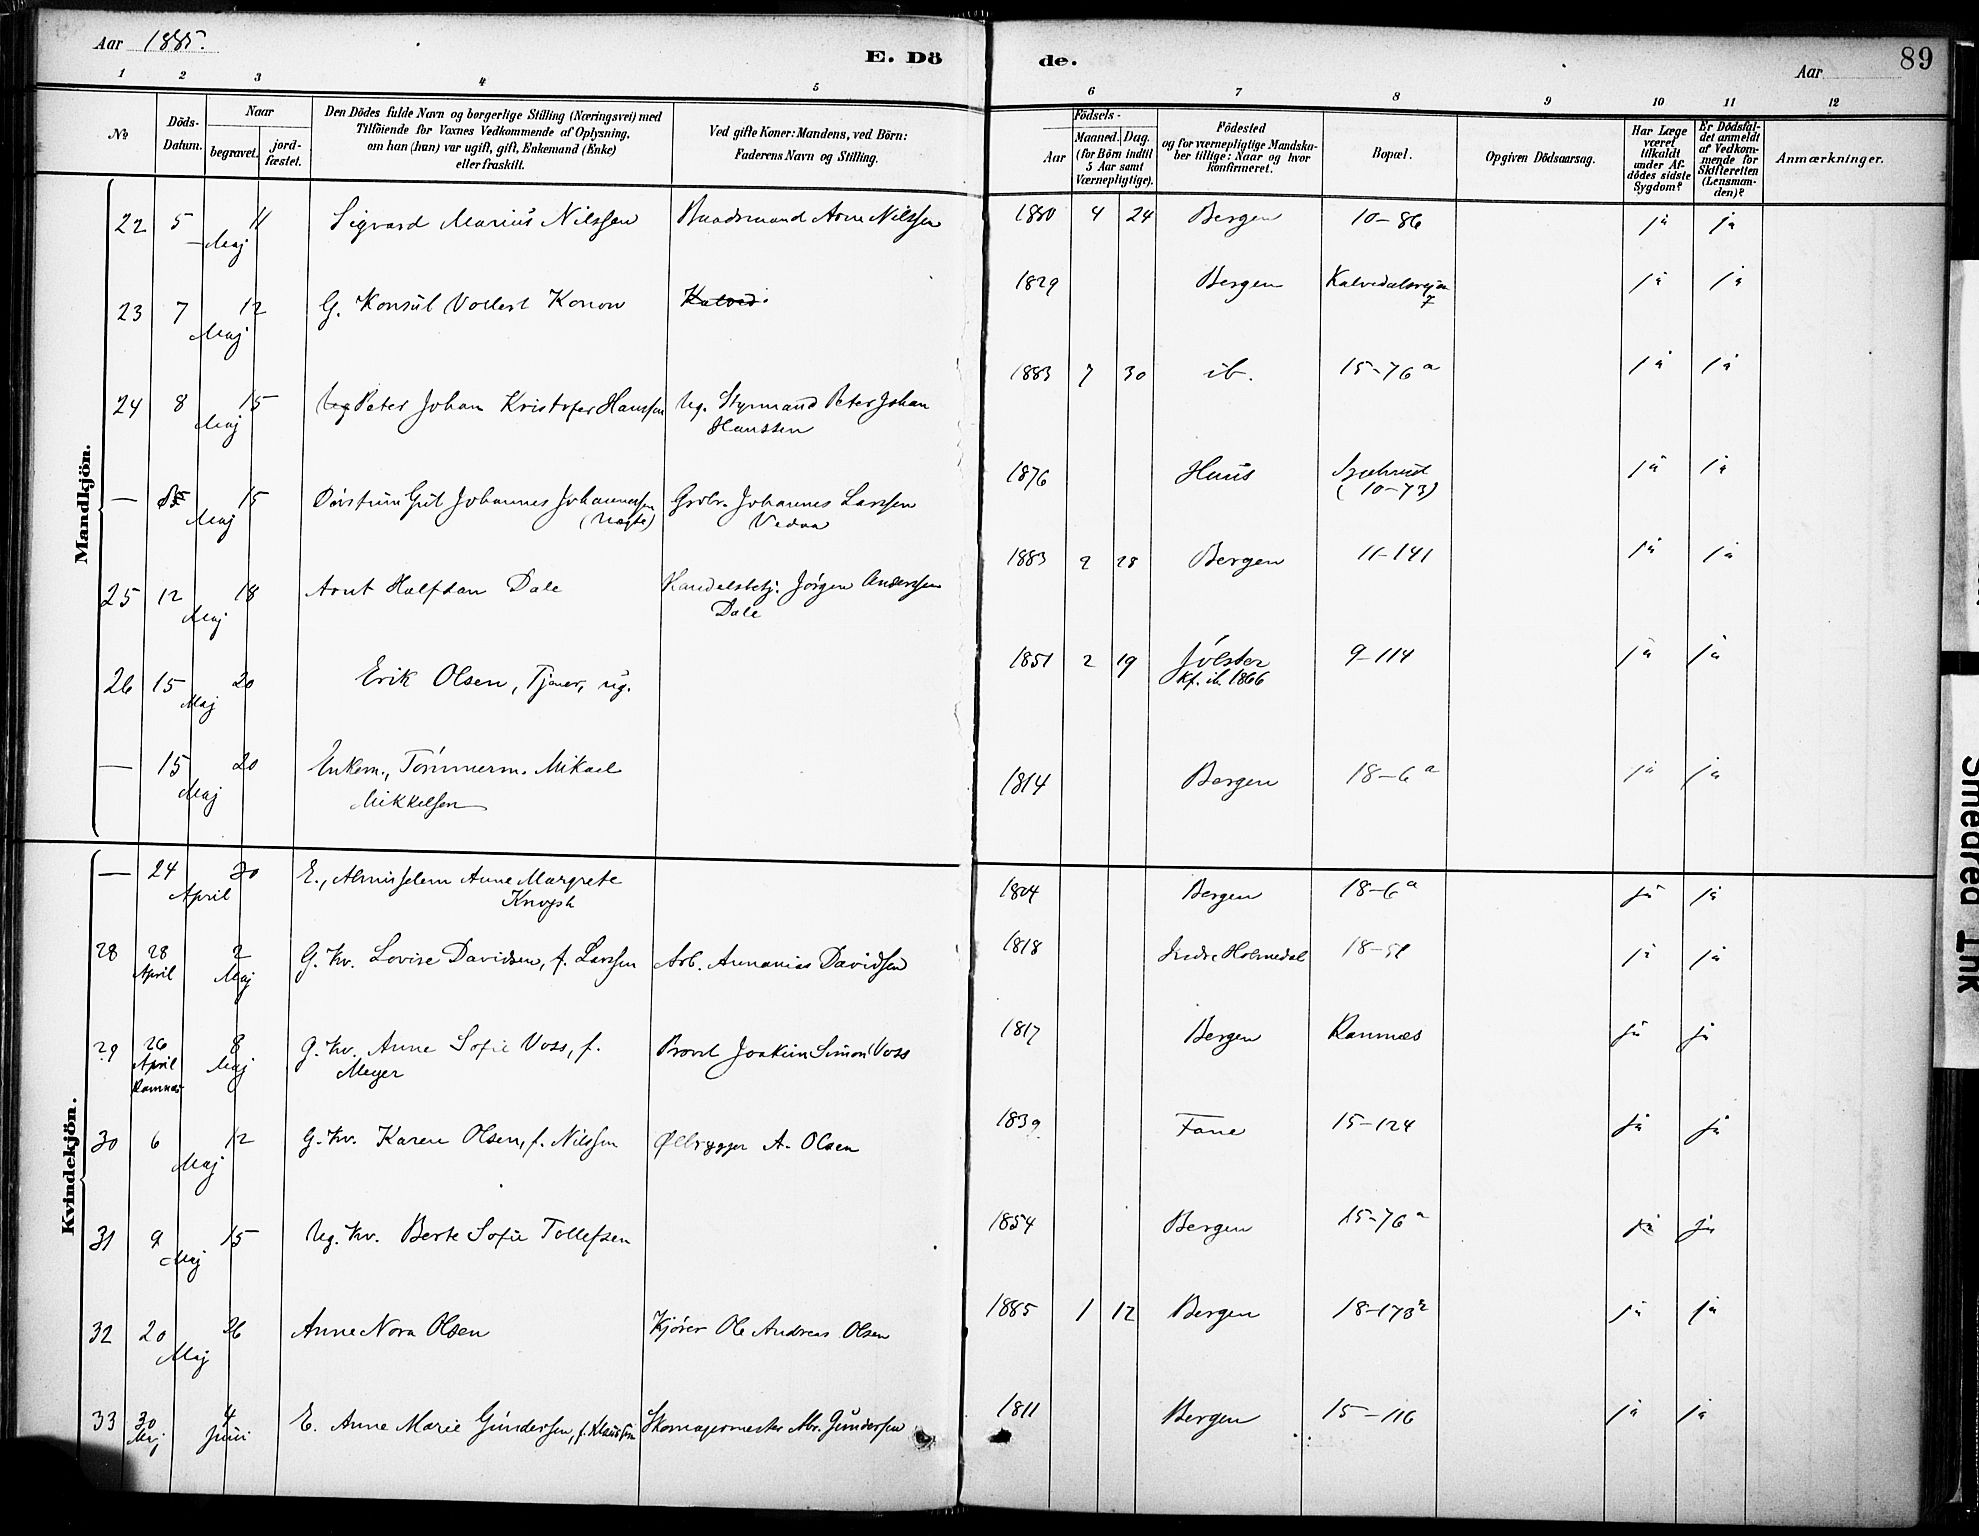 Aar 1885.
E. Dö
de.
Aar
89
1 2 3 4 5 6 7 8 9 10 11 12
No
Döds-
Datum.
Naar
begravet.
jord-
fæstet.
Den Dödes fulde Navn og borgerlige Stilling (Næringsvei) med
Tilföiende for Voxnes Vedkommende af Oplysning,
om han (hun) var ugift, gift, Enkemand (Enke)
eller fraskilt.
Ved gifte Koner: Mandens, ved Börn:
Faderens Navn og Stilling.
Födsels-
Aar
Maaned.
Dag.
(for Börn indtil
5 Aar samt
Værnepligtige).
Födested
og for værnepligtige Mandska-
ber tillige: Naar og hvor
konfirmeret.
Bopæl.
Opgiven Dödsaarsag.
Har Læge
været
tilkaldt
under Af-
dödes sidste
Sygdom?
Er Dödsfal-
det anmeldt
af Vedkom-
mende for
Skifteretten
(Lensman-
den)?
Anmærkninger.
Mandkjön.
22 5 11 Sigvard Marius Nilssen Baadsmand Arne Nilssen 1880 4 24 Bergen 10-86 ja ja
Maj
23 7 12 G. Konsul Vollert Konow 1829 Bergen Kalvedalsvejen ja ja
Maj 7
24 8 15 Peter Johan Kristofer Hanssen Ug. Styrmand Peter Johan 1883 7 30 ib. 15-76a ja ja
Maj Hanssen
— 15 Gut Johannes Johannessen Grdbr. Johannes Larssen 1876 Haus ja ja
Maj Vedaa (10-73)
25 12 18 Arnt Halfdan Dale Handelsbetj. Jørgen Anderssen 1883 2 28 Bergen 11-141 ja ja
Maj Dale
26 15 20 Erik Olsen, Tjener, ug. 1851 2 19 Jölster 9-114 ja ja
Maj kf. ib. 1866
— 15 20 Enkem., Tömmerm. Mikael 1814 Bergen 18-6a ja ja
Maj Mikkelsen
Kvindekjön.
— 24 30 E., Almisselem Anne Margrete 1804 Bergen 18-6a ja ja
April
28 28 2 G. Kv. Lovise Davidsen, f. Larssen Arb. Annanias Davidsen 1818 Indre Holmedal ja ja
April Maj
29 26 8 G. Kv. Anne Sofie Voss, f. Provst Joakim Simon Voss 1817 Bergen Ramnæs ja ja
April Maj Meyer
Ramnæs
30 6 12 G. Kv. Karen Olsen, f. Nilssen Ølbrygger A. Olsen 1839 Fane 15-124 ja ja
Maj
31 9 15 Ug. Kv. Berte Sofie Tollefsen 1854 Bergen 15-76a ja ja
Maj
32 20 26 Anne Nora Olsen Kjører Ole Andreas Olsen 1885 1 12 Bergen ja ja
Maj
33 30 4 E. Anne Marie Gundersen, f. Klaussen Skomagermester Abr. Gundersen 1811 Bergen 15-116 ja ja
Maj Juni
Smeared Ink